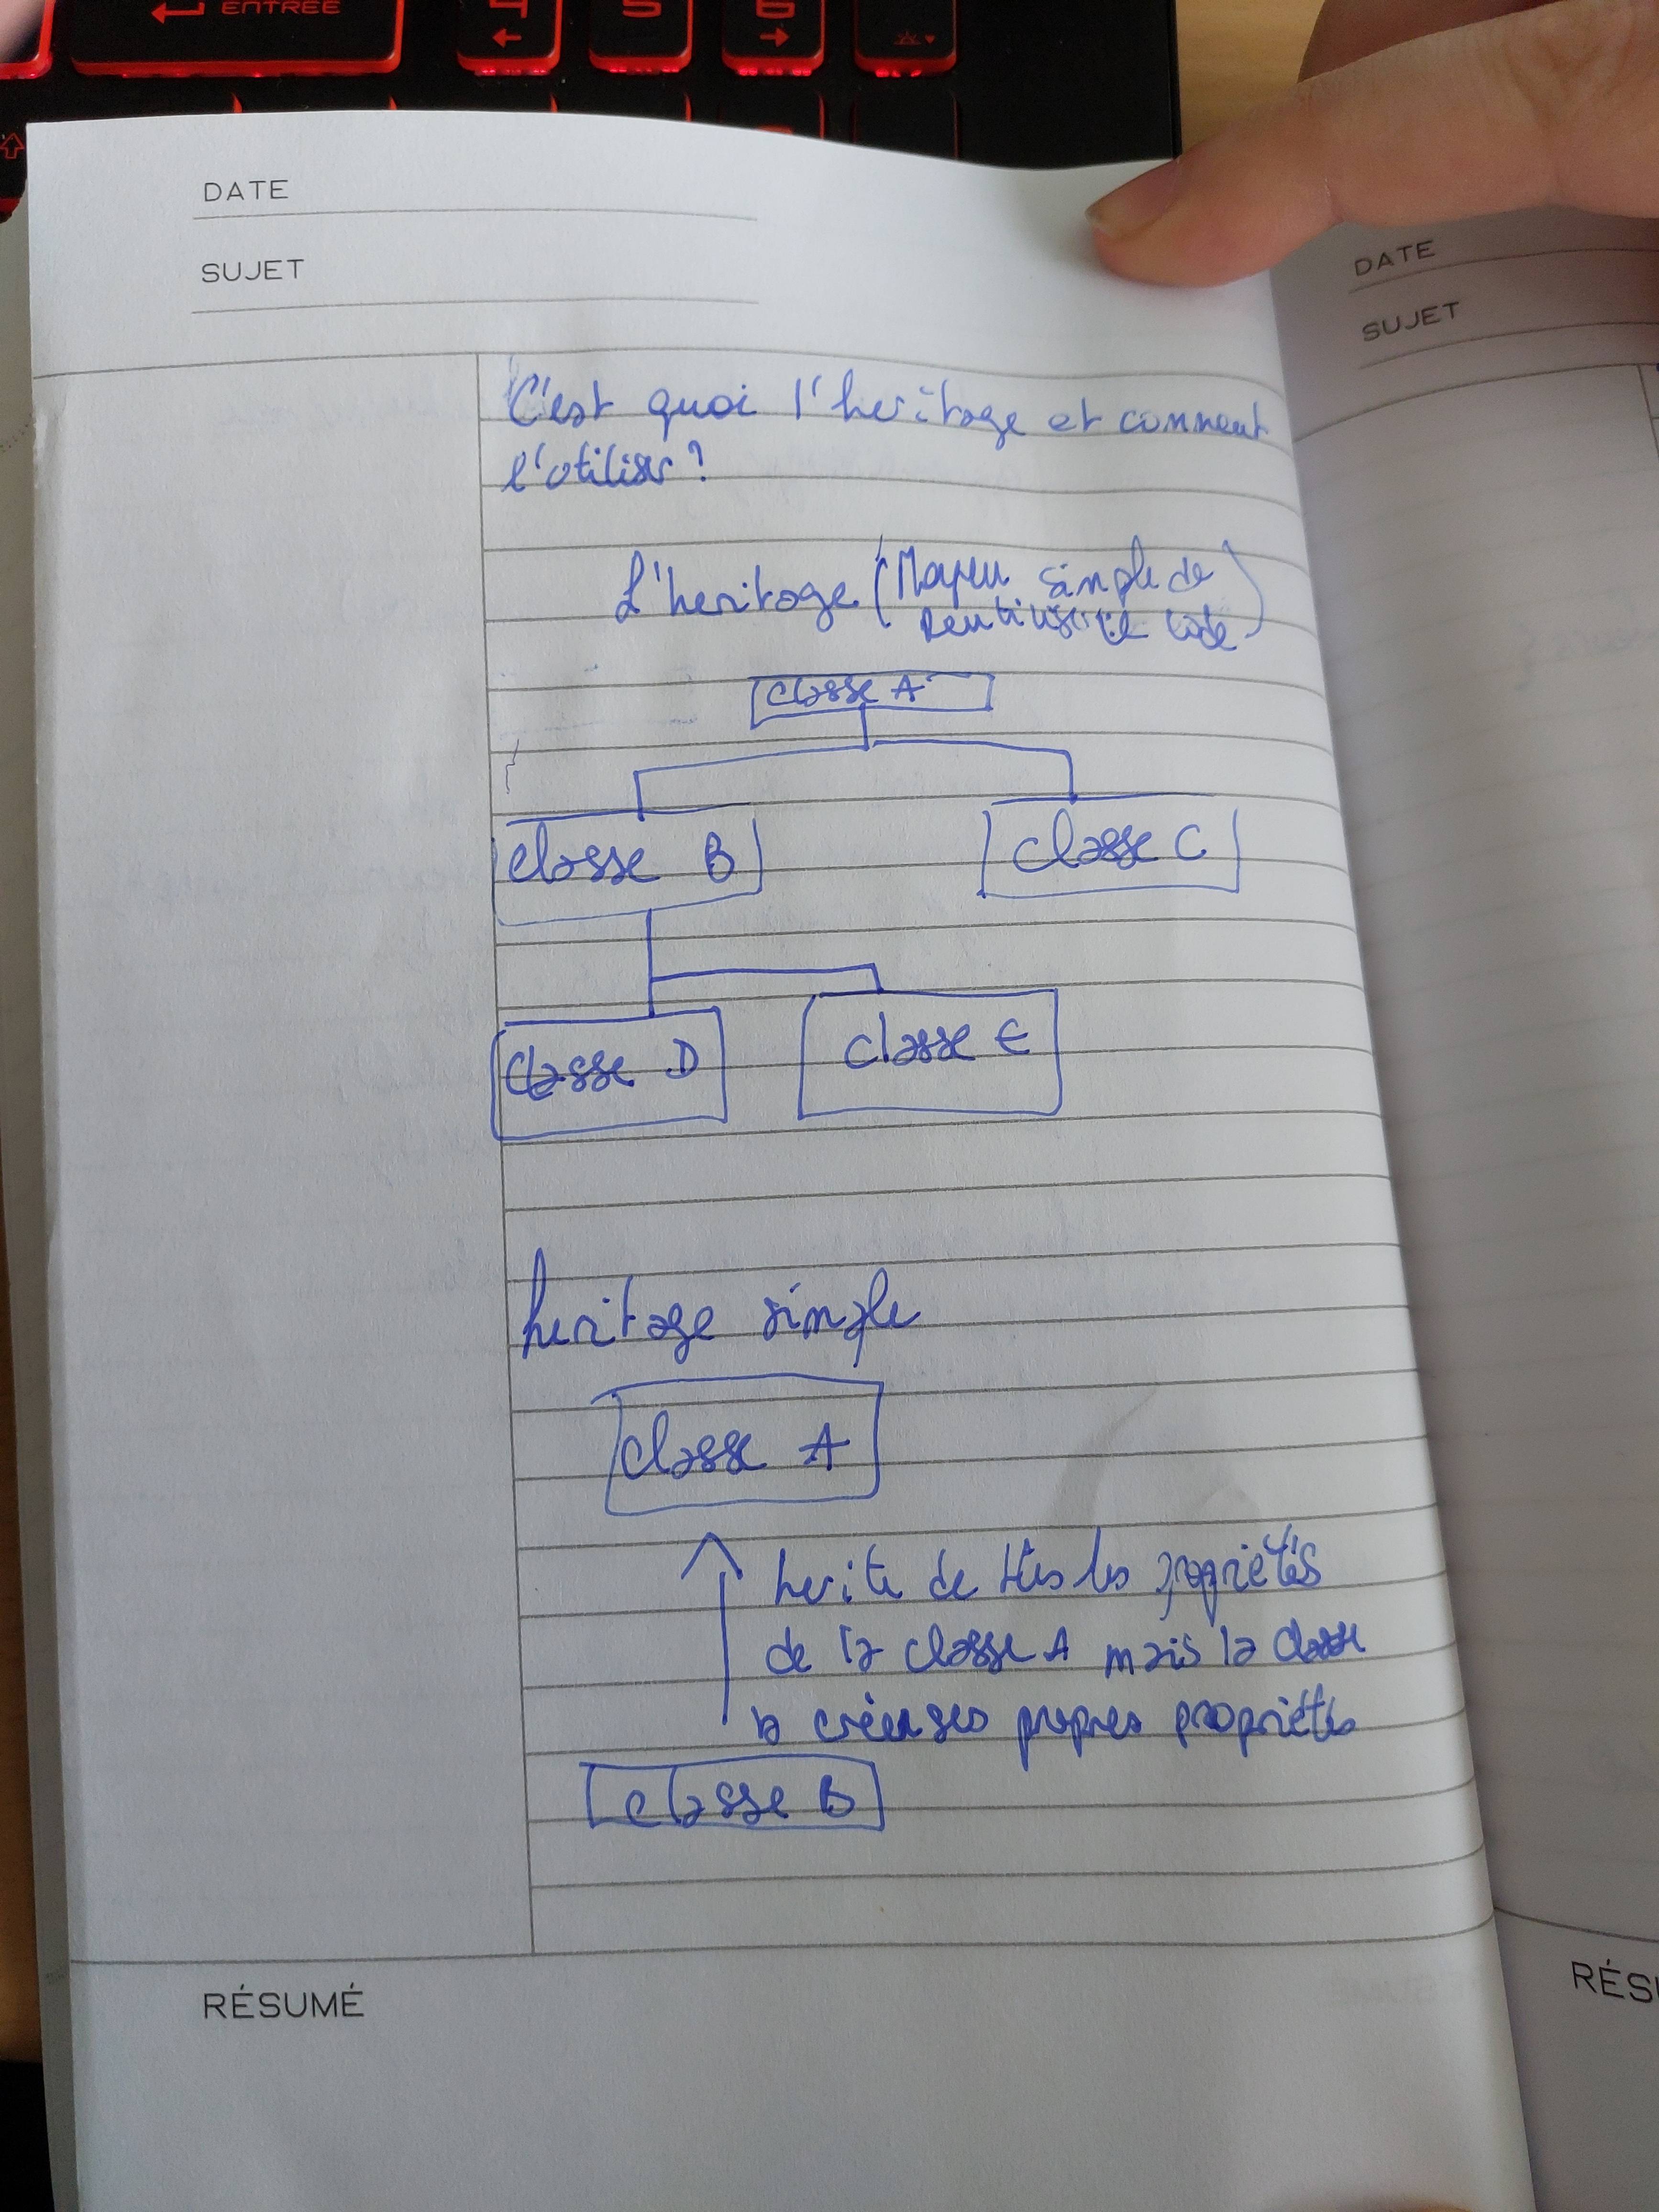 ENTRÉE
4
5
6
DATE
SUJET
DATE
SUJET
C'est quoi l'heritage et comment
l'utiliser?
L'heritage (Moyen simple de
reutiliser le code)
classe A
classe B
classe C
classe D
classe E
heritage simple
classe A
herite de ttes les propriétés
de la classe A mais la classe
b créer ses propres propriétés
classe B
RÉSUMÉ
RÉS